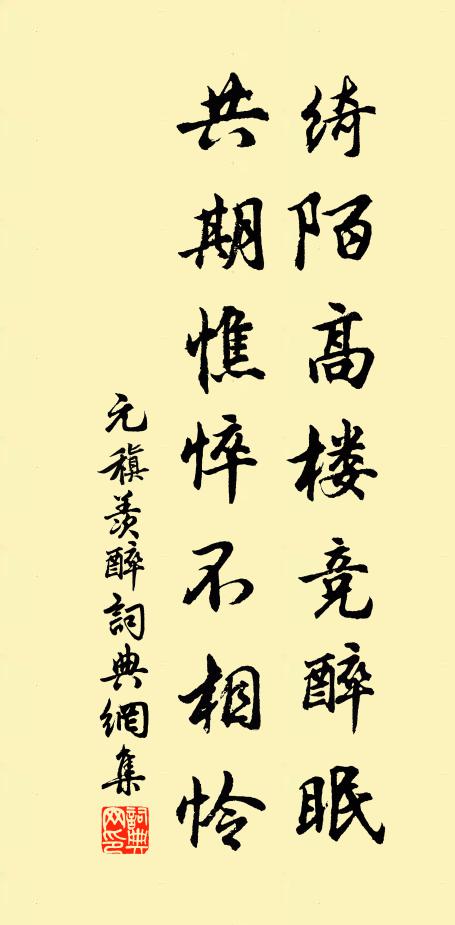 绮陌高楼竞醉眠
共期憔悴不相怜
元稹羡醉詞典網集
詞典网印